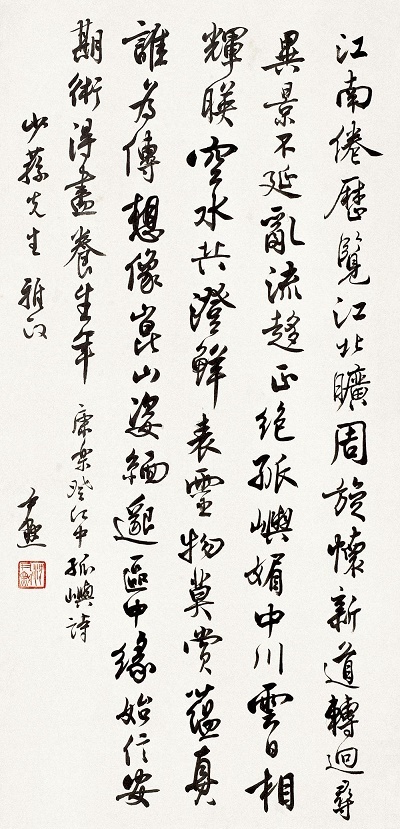 江南倦歷覽江北曠周旋懷新道轉迥尋
異景不延亂流趨正絕孤嶼媚中川雲日相
輝暎空水共澄鮮表靈物莫賞蘊真
誰為傳想像崑山姿緬邈區中緣始信安
期術得盡養生年 康樂登江中孤嶼詩
少蓀先生雅正
尹默